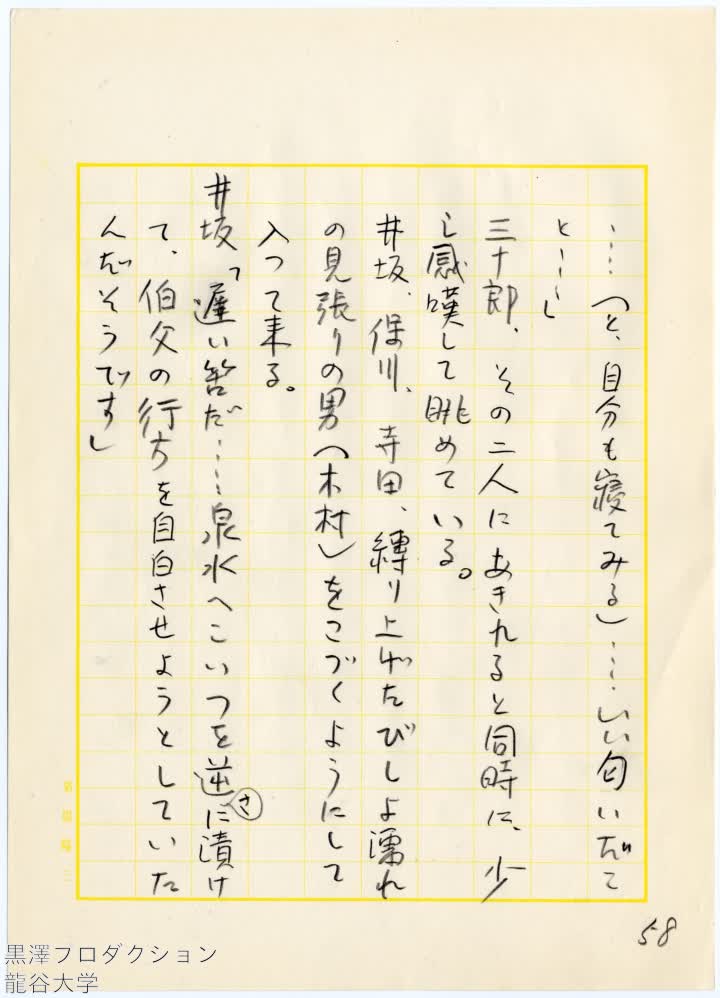 ……（と、自分も寝てみる）……いい匂いだて
と……」
三十郎、その二人にあきれると同時に、少
し感嘆して眺めている。
井坂、保川、寺田、縛り上げたびしょ濡れ
の見張りの男（木村）をこづくようにして
入って来る。
井坂「遅い筈だ……泉水へこいつを逆さに漬け
て、伯父の行方を自白させようとしていた
んだそうです」
58
黒澤プロダクション
龍谷大学